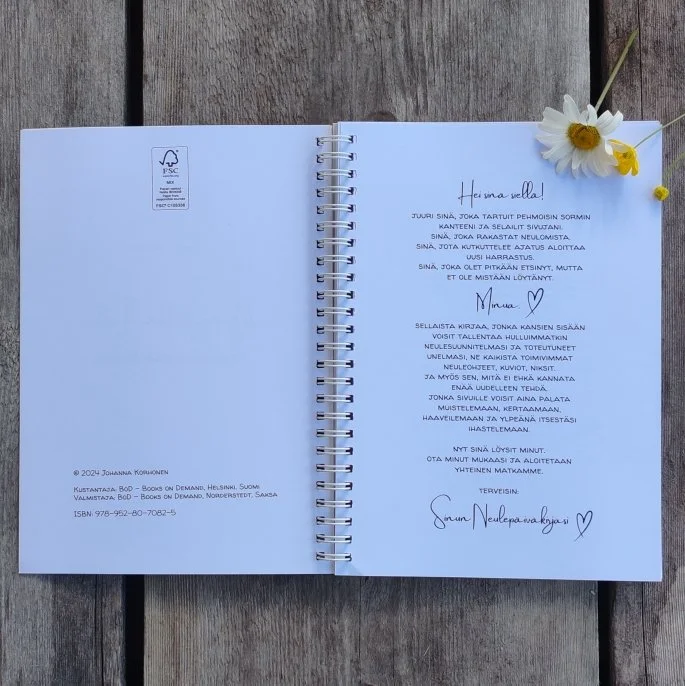 FSC
MIX
FSC® C105338
© 2024 Johanna Korhonen
Kustantaja: BoD – Books on Demand, Helsinki, Suomi
Valmistaja: BoD – Books on Demand, Norderstedt, Saksa
ISBN: 978-952-80-7082-5
Hei sinä siellä!
JUURI SINÄ, JOKA TARTUIT PEHMOISIN SORMIN
KANTEENI JA SELAILIT SIVUJANI.
SINÄ, JOKA RAKASTAT NEULOMISTA.
SINÄ, JOTA KUTKUTTELEE AJATUS ALOITTAA
UUSI HARRASTUS.
SINÄ, JOKA OLET PITKÄÄN ETSINYT, MUTTA
ET OLE MISTÄÄN LÖYTÄNYT.
Minua. ♡
SELLAISTA KIRJAA, JONKA KANSIEN SISÄÄN
VOISIT TALLENTAA HULLUIMMATKIN
NEULESUUNNITELMASI JA TOTEUTUNEET
UNELMASI, NE KAIKISTA TOIMIVIMMAT
NEULEOHJEET, KUVIOT, NIKSIT.
JA MYÖS SEN, MITÄ EI EHKÄ KANNATA
ENÄÄ UUDELLEEN TEHDÄ.
JONKA SIVUILLE VOISIT AINA PALATA
MUISTELEMAAN, KERTAAMAAN,
HAAVEILEMAAN JA YLPEÄNÄ ITSESTÄSI
IHASTELEMAAN.
NYT SINÄ LÖYSIT MINUT.
OTA MINUT MUKAASI JA ALOITETAAN
YHTEINEN MATKAMME.
TERVEISIN:
Sinun Neulepäiväkirjasi ♡